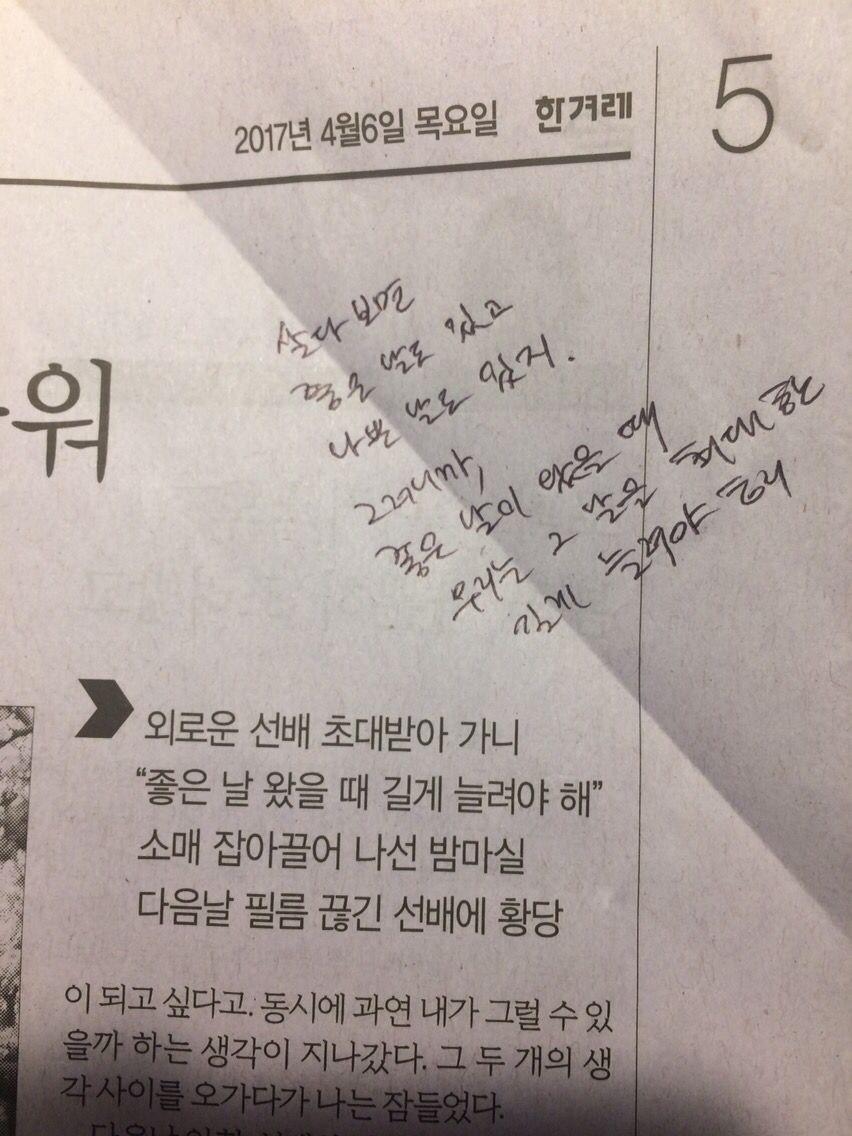 2017년 4월6일 목요일 한겨레 5
살다 보면
좋은 날도 있고
나쁜 날도 있지.
그러니까,
좋은 날이 왔을 때
우리는 그 날을 최대한
길게 늘려야 돼
워
외로운 선배 초대받아 가니
“좋은 날 왔을 때 길게 늘려야 해”
소매 잡아끌어 나선 밤마실
다음날 필름 끊긴 선배에 황당
이 되고 싶다고. 동시에 과연 내가 그럴 수 있
을까 하는 생각이 지나갔다. 그 두 개의 생
각 사이를 오가다가 나는 잠들었다.